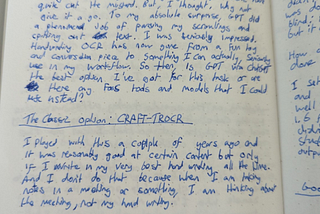 quite cut the mustard. But, I thought, why not
give it a go. To my absolute surprise, GPT did
a phenomenal job of parsing my scrawlings and
spitting out text. I was seriously impressed.
Handwriting OCR has now gone from a fun toy
and conversation piece to something I can actually, seriously
use in my workflow. So then, is GPT via ChatGPT
the best option I've got for this task or are
there any foss tools and models that I could
use instead?
The Classic option: CRAFT-TROCR
I played with this a couple of years ago and
it was reasonably good at certain content but only
if I wrote in my very best hand writing all the time.
And I don't do that because when I am taking
notes in a meeting or something, I am thinking about
the meeting, not my hand writing.
was d
blind
but it
How
done
I set
and
well